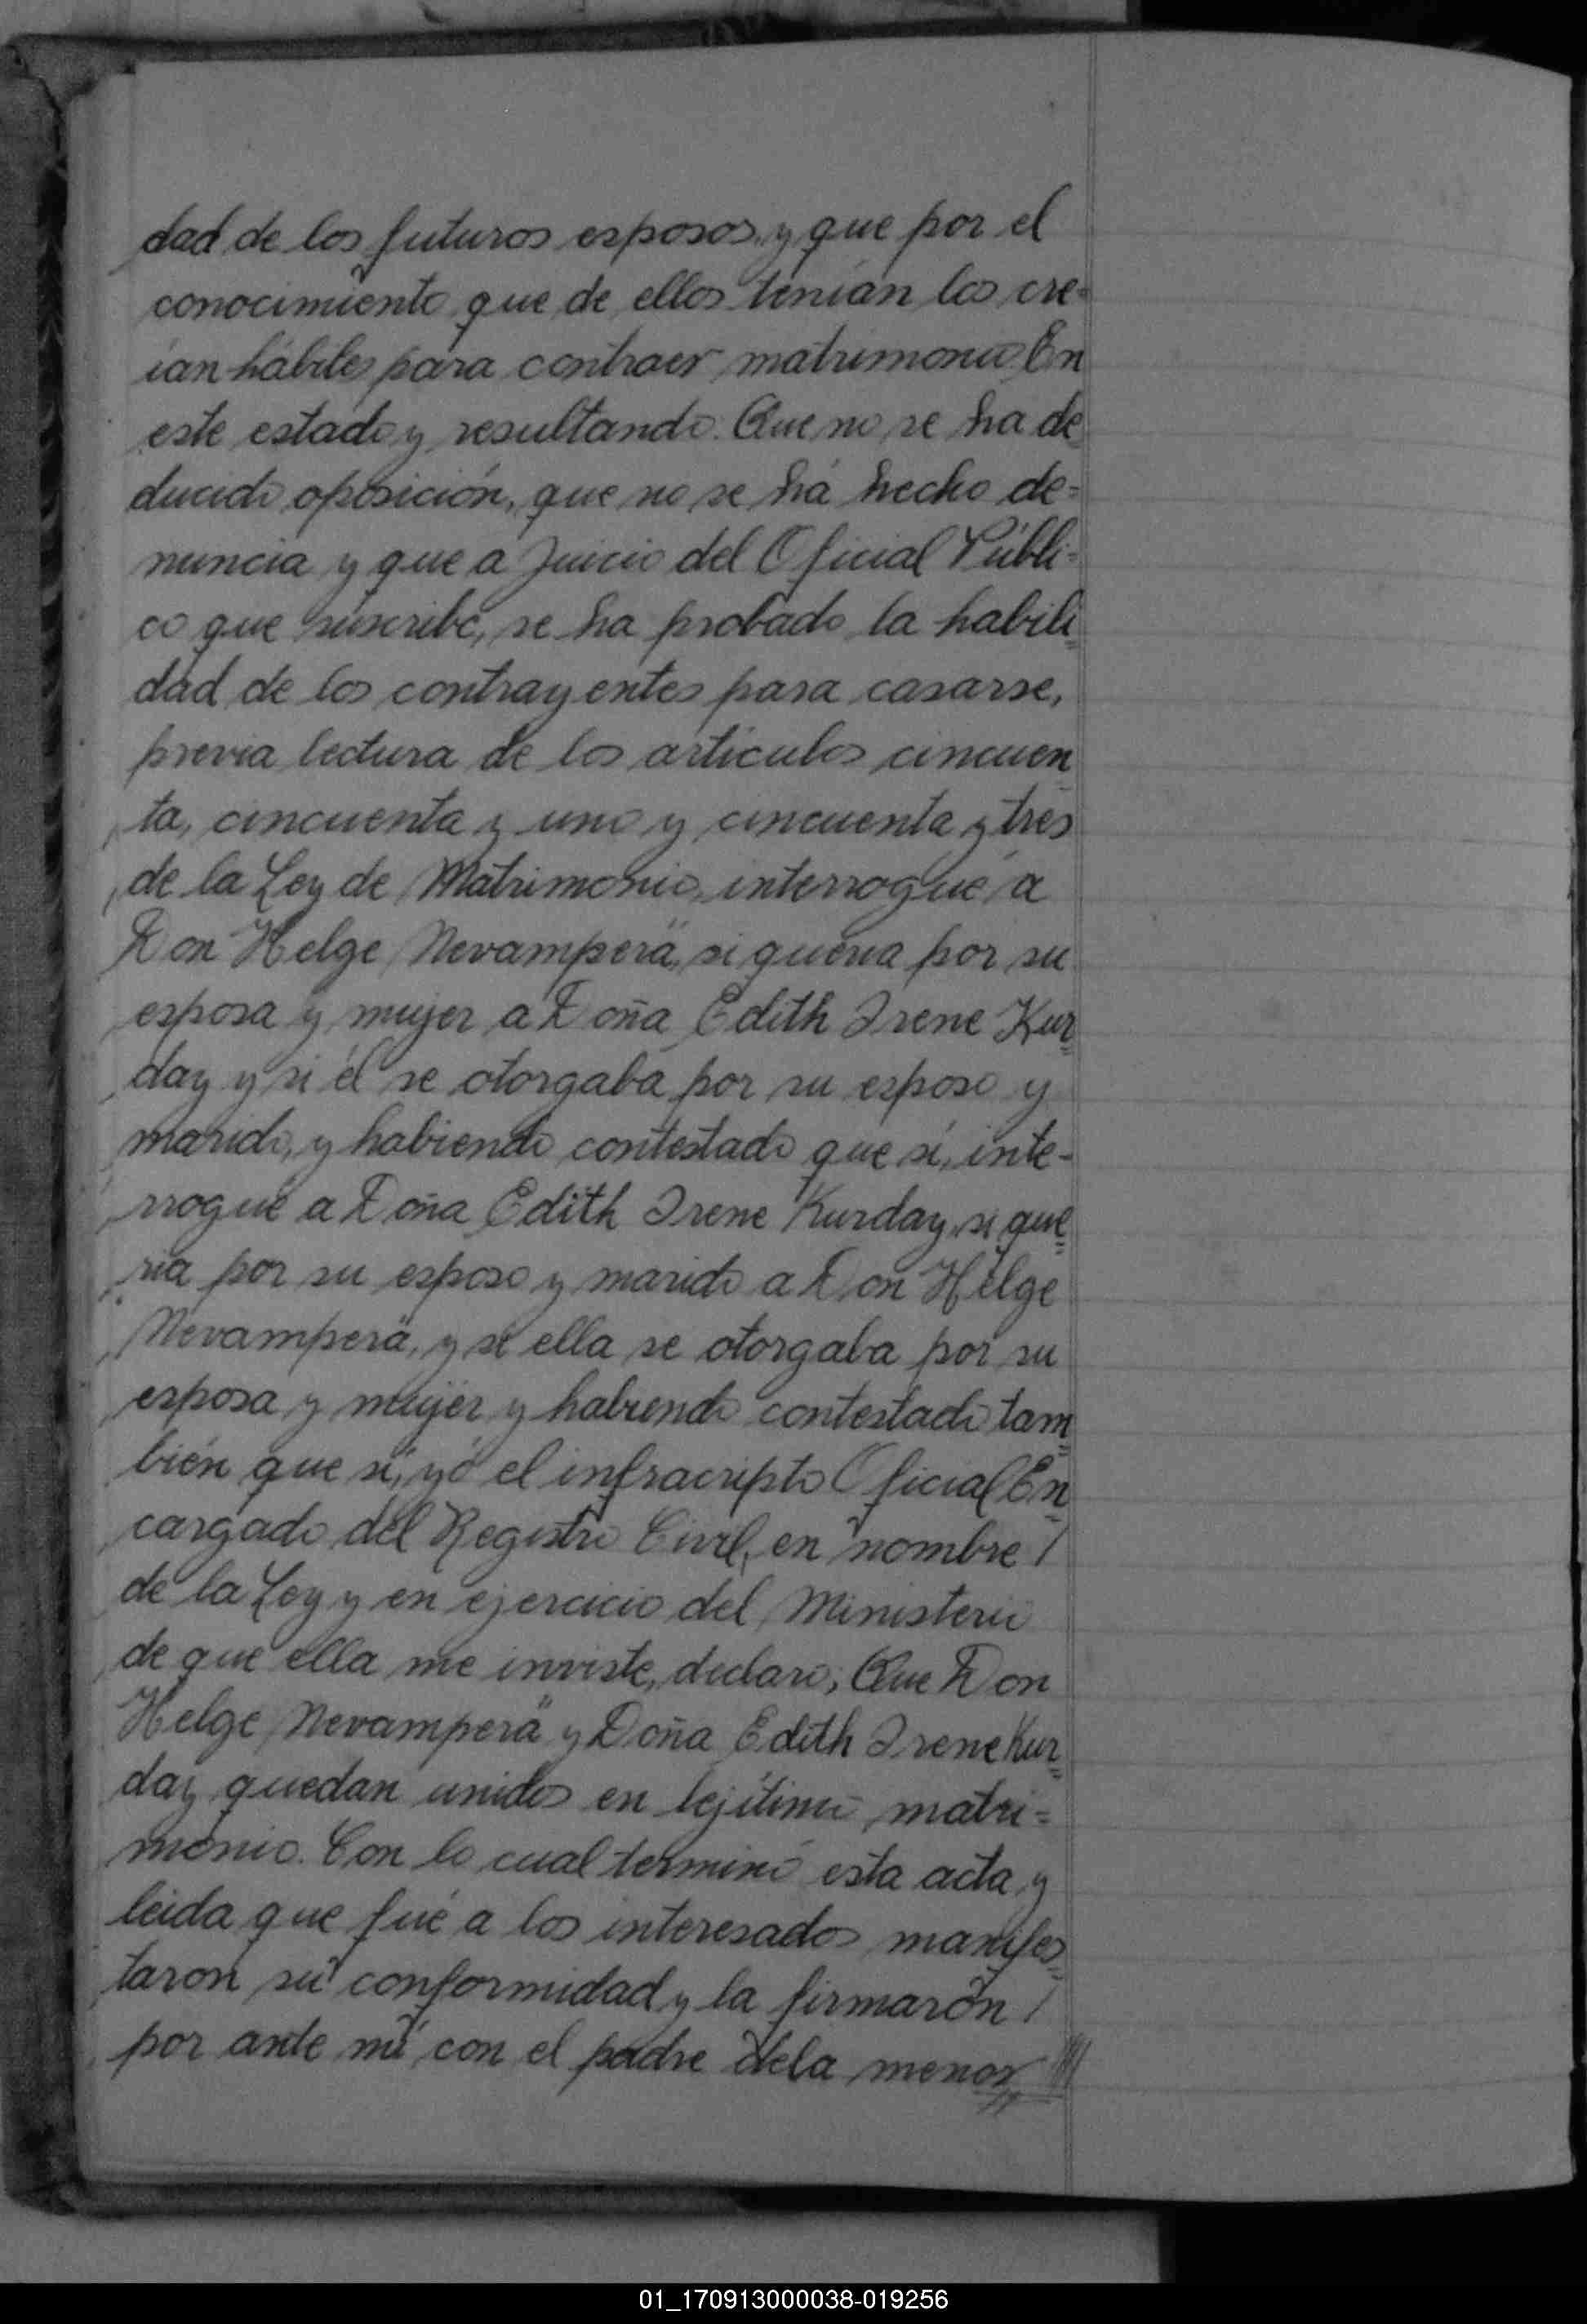 dad de los futuros esposos, y que por el
conocimiento que de ellos tenían los cre=
ían hábiles para contraer matrimonio. En
este estado y resultando. Que no se ha de
ducido oposición, que no se há hecho de=
nuncia y que a juicio del Oficial Públi=
co que suscribe, se ha probado la habili=
dad de los contrayentes para casarse,
previa lectura de los artículos cincuen
ta, cincuenta y uno y cincuenta y tres
de la Ley de Matrimonio, interrogué a
Don Helge Nevamperä, si quería por su
esposa y mujer a Doña Edith Irene Kur=
day y si él se otorgaba por su esposo y
marido, y habiendo contestado que sí, inte-
rrogué a Doña Edith Irene Kurday, si que=
ría por su esposo y marido a Don Helge
Nevamperä, y si ella se otorgaba por su
esposa y mujer y habiendo contestado tam=
bién que sí, yó el infracripto Oficial En=
cargado del Registro Civil, en nombre /
de la Ley y en ejercicio del Ministerio
de que ella me inviste, declaro; Que Don
Helge Nevamperä y Doña Edith Irene Kur=
day quedan unidos en lejítimo matri=
monio. Con lo cual terminó esta acta y
leida que fué a los interesados manifes=
taron su conformidad y la firmarón /
por ante mí con el padre dela menor ////
01_170913000038-019256